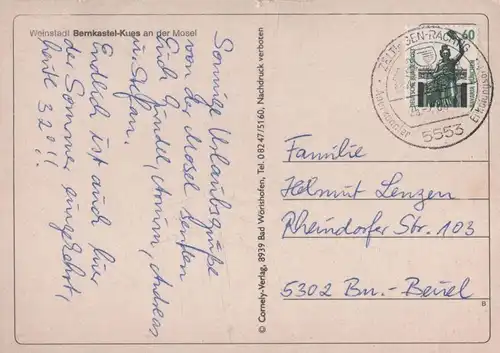 Weinstadt Bernkastel-Kues an der Mosel
Sonnige Urlaubsgrüße
von der Mosel senden
Euch Gundel, Armin, Andreas
u. Stefan.
Endlich ist auch hier
der Sommer eingekehrt,
heute 32°!!
© Cornely-Verlag, 8939 Bad Wörishofen, Tel. 08247/5160, Nachdruck verboten
60
ZELTINGEN-RACHTIG
Anerkannter
Erholungsort
5553
Familie
Helmut Lenzen
Rheindorfer Str. 103
5302 Bn.-Beuel
B